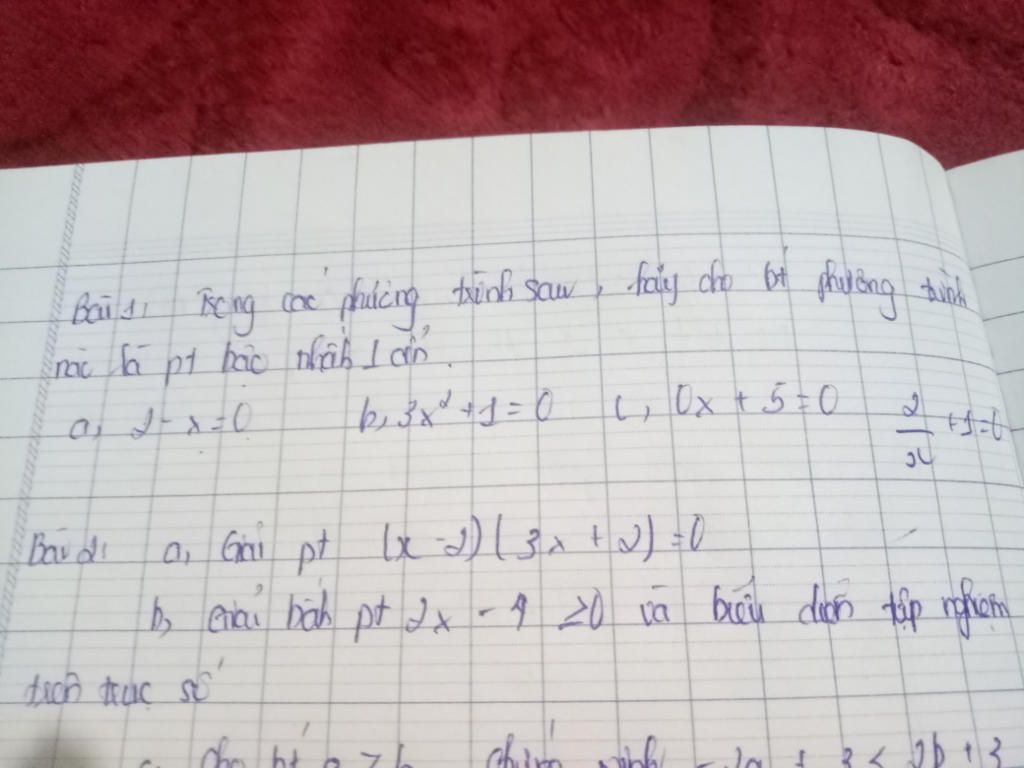 Bài 1, Trong các phương trình sau, hãy cho bt phương trình
nào là pt bậc nhất 1 ẩn.
a, 2 - x = 0 b, 3x² + 1 = 0 c, 0x + 5 = 0 2/x + 1 = 0
Bài 2: a, Giải pt (x - 2)(3x + 2) = 0
b, Giải bất pt 2x - 4 ≥ 0 và biểu diễn tập nghiệm
trên trục số
c, cho bt a > b chứng minh - 2a + 3 < 2b + 3